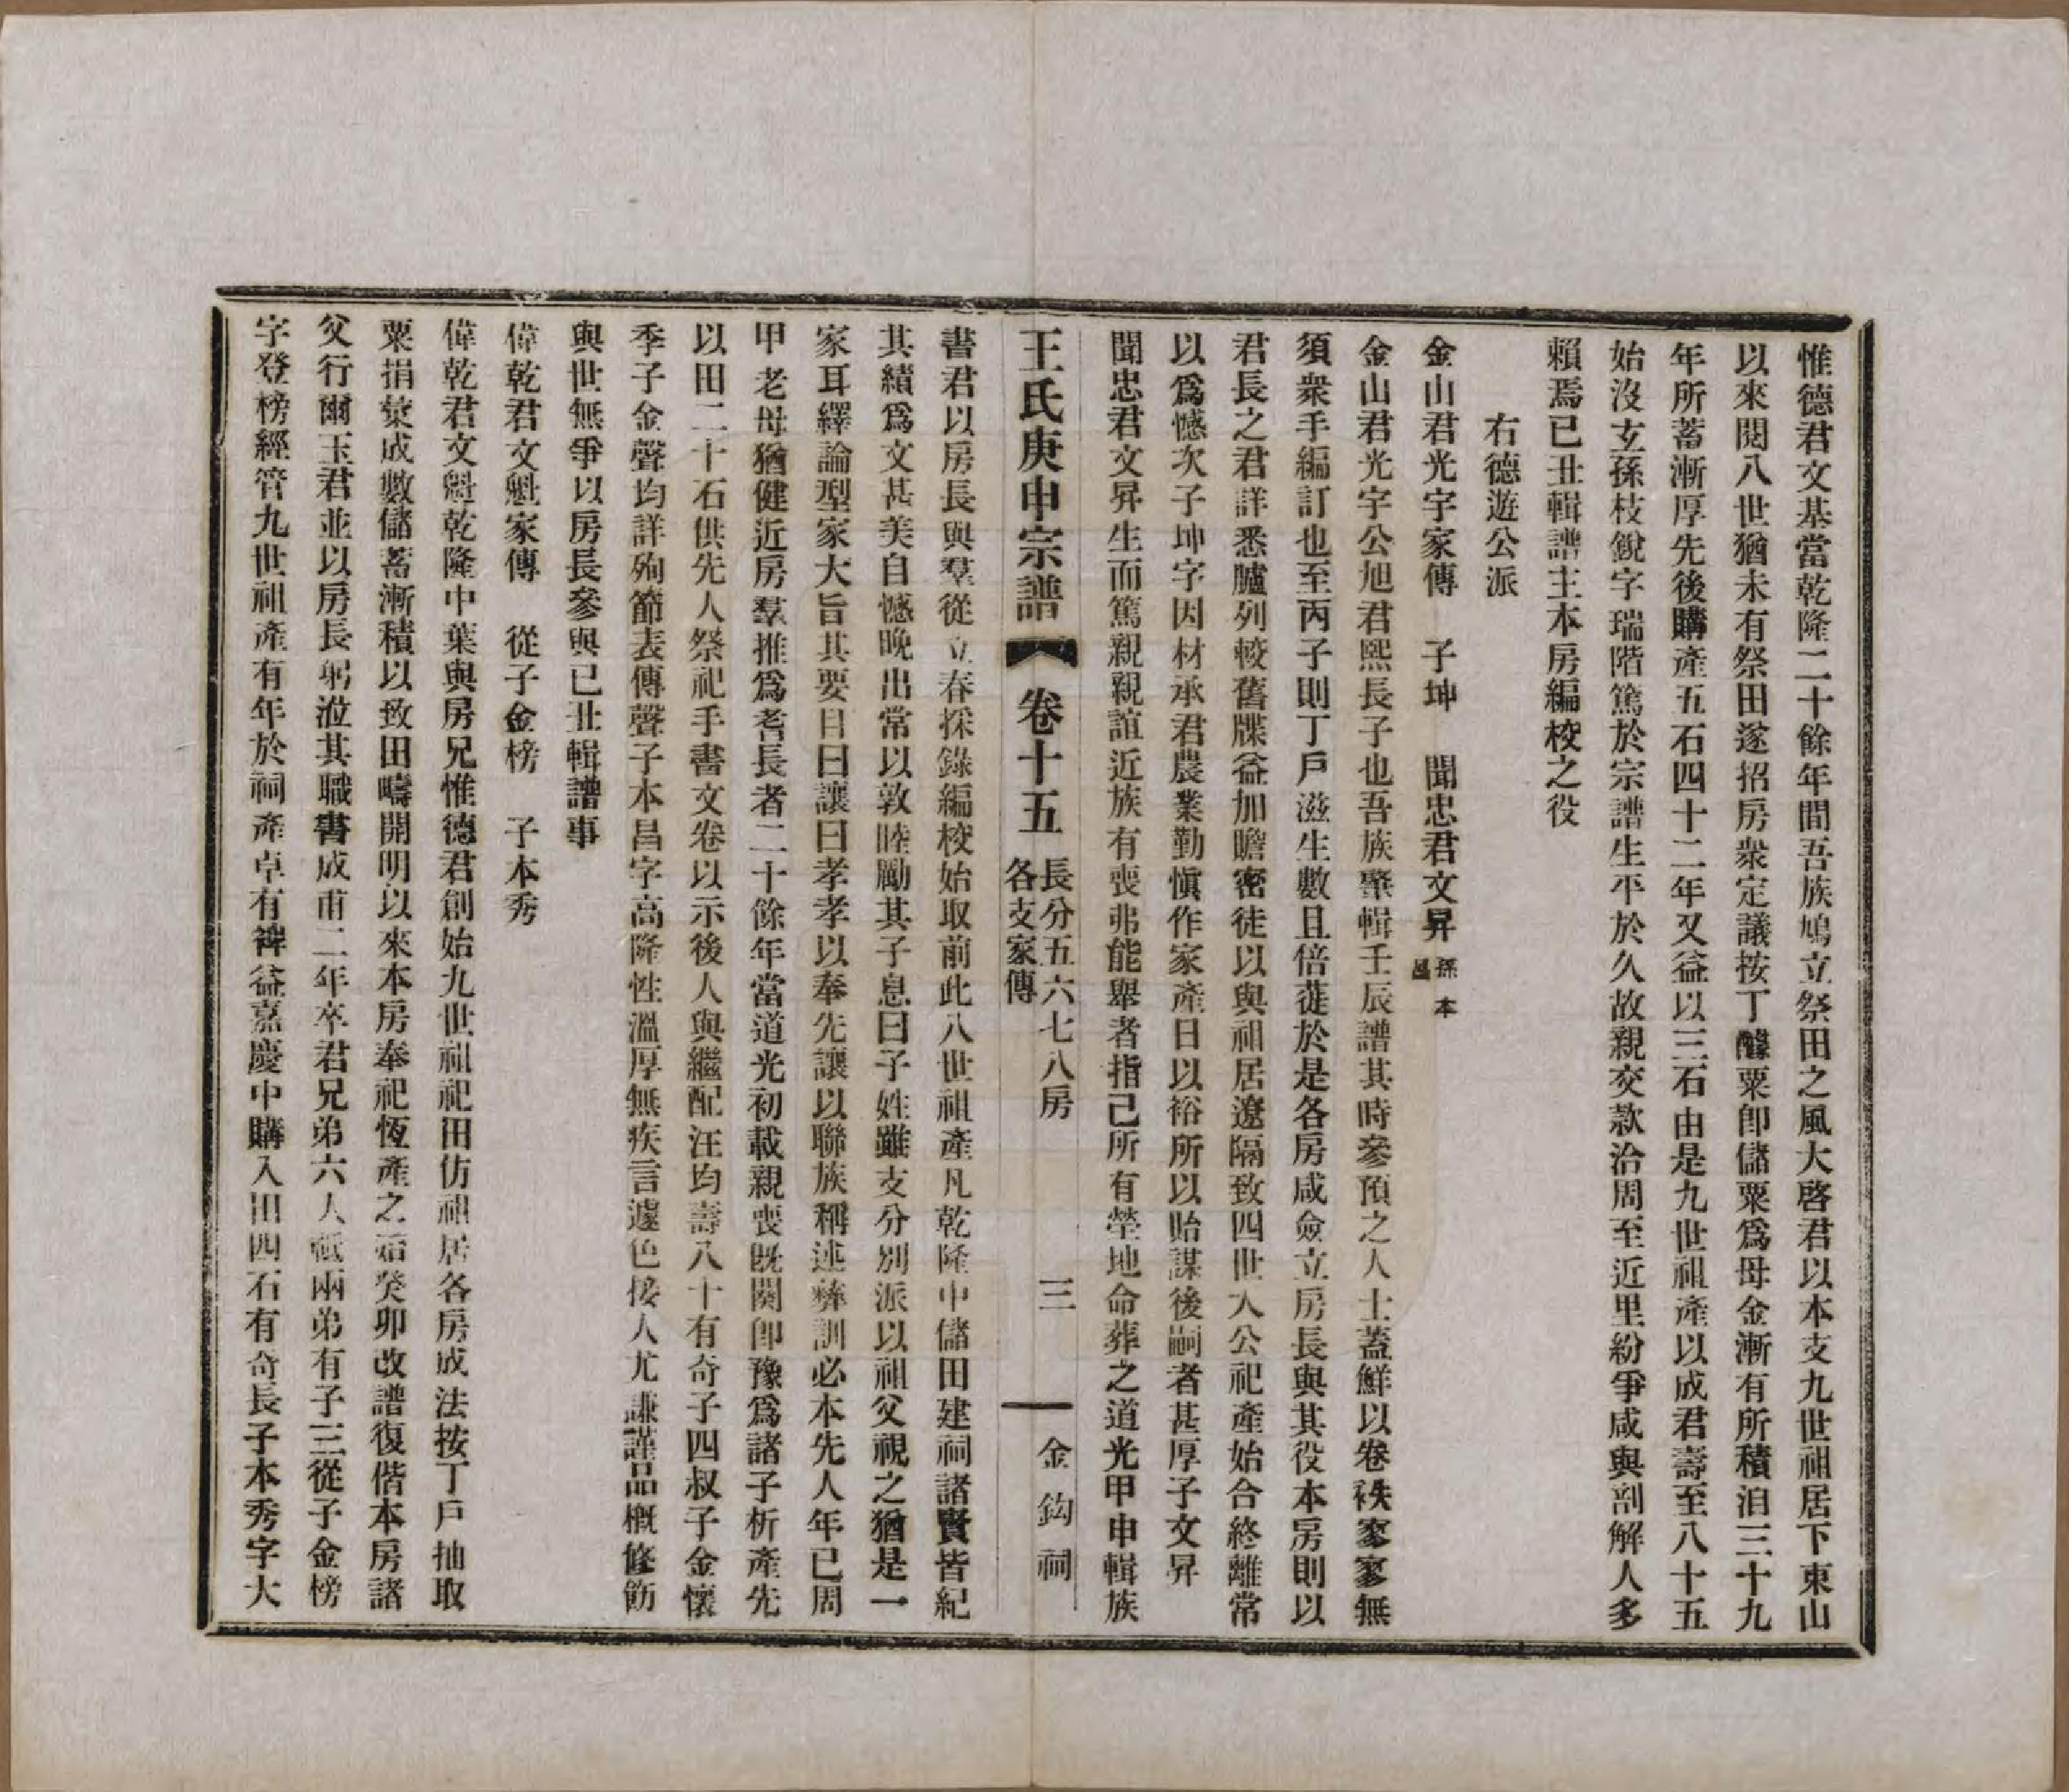 惟德君文基當乾隆二十餘年間吾族鳩立祭田之風大啓君以本支九世祖居下東山
以來閱八世猶未有祭田遂招房衆定議按丁醵粟卽儲粟爲母金漸有所積洎三十九
年所蓄漸厚先後購產五石四十二年又益以三石由是九世祖產以成君壽至八十五
始沒玄孫枝銳字瑞階篤於宗譜生平於久故親交款洽周至近里紛爭咸與剖解人多
賴焉已丑輯譜主本房編校之役
右德遊公派
金山君光宇家傳　子坤　聞忠君文昇　孫本昌
金山君光宇公旭君熙長子也吾族肇輯壬辰譜其時參預之人士蓋鮮以卷袟寥寥無
須衆手編訂也至丙子則丁戶滋生數且倍蓰於是各房咸僉立房長與其役本房則以
君長之君詳悉臚列較舊牒益加贍密徒以與祖居遼隔致四世人公祀產始合終離常
以爲憾次子坤字因材承君農業勤愼作家產日以裕所以貽謀後嗣者甚厚子文昇
聞忠君文昇生而篤親親誼近族有喪弗能舉者指己所有塋地命葬之道光甲申輯族
王氏庚申宗譜　卷十五　長分五六七八房各支家傳　三　金鈎祠
書君以房長與羣從立春採錄編校始取前此八世祖產凡乾隆中儲田建祠諸賢皆紀
其績爲文甚美自憾晚出常以敦睦勵其子息曰子姓雖支分別派以祖父視之猶是一
家耳繹論型家大旨其要目曰讓曰孝孝以奉先讓以聯族稱述彝訓必本先人年已周
甲老母猶健近房羣推爲耆長者二十餘年當道光初載親喪旣闋卽豫爲諸子析產先
以田二十石供先人祭祀手書文卷以示後人與繼配汪均壽八十有奇子四叔子金懷
季子金聲均詳殉節表傳聲子本昌字高隆性溫厚無疾言遽色接人尤謙謹品槪修飭
與世無爭以房長參與已丑輯譜事
偉乾君文魁家傳　從子金榜　子本秀
偉乾君文魁乾隆中葉與房兄惟德君創始九世祖祀田仿祖居各房成法按丁戶抽取
粟捐彙成數儲蓄漸積以致田疇開明以來本房奉祀恆產之始癸卯改譜復偕本房諸
父行爾玉君並以房長躬涖其職書成甫二年卒君兄弟六人祗兩弟有子三從子金榜
字登榜經管九世祖產有年於祠產卓有裨益嘉慶中購入田四石有奇長子本秀字大